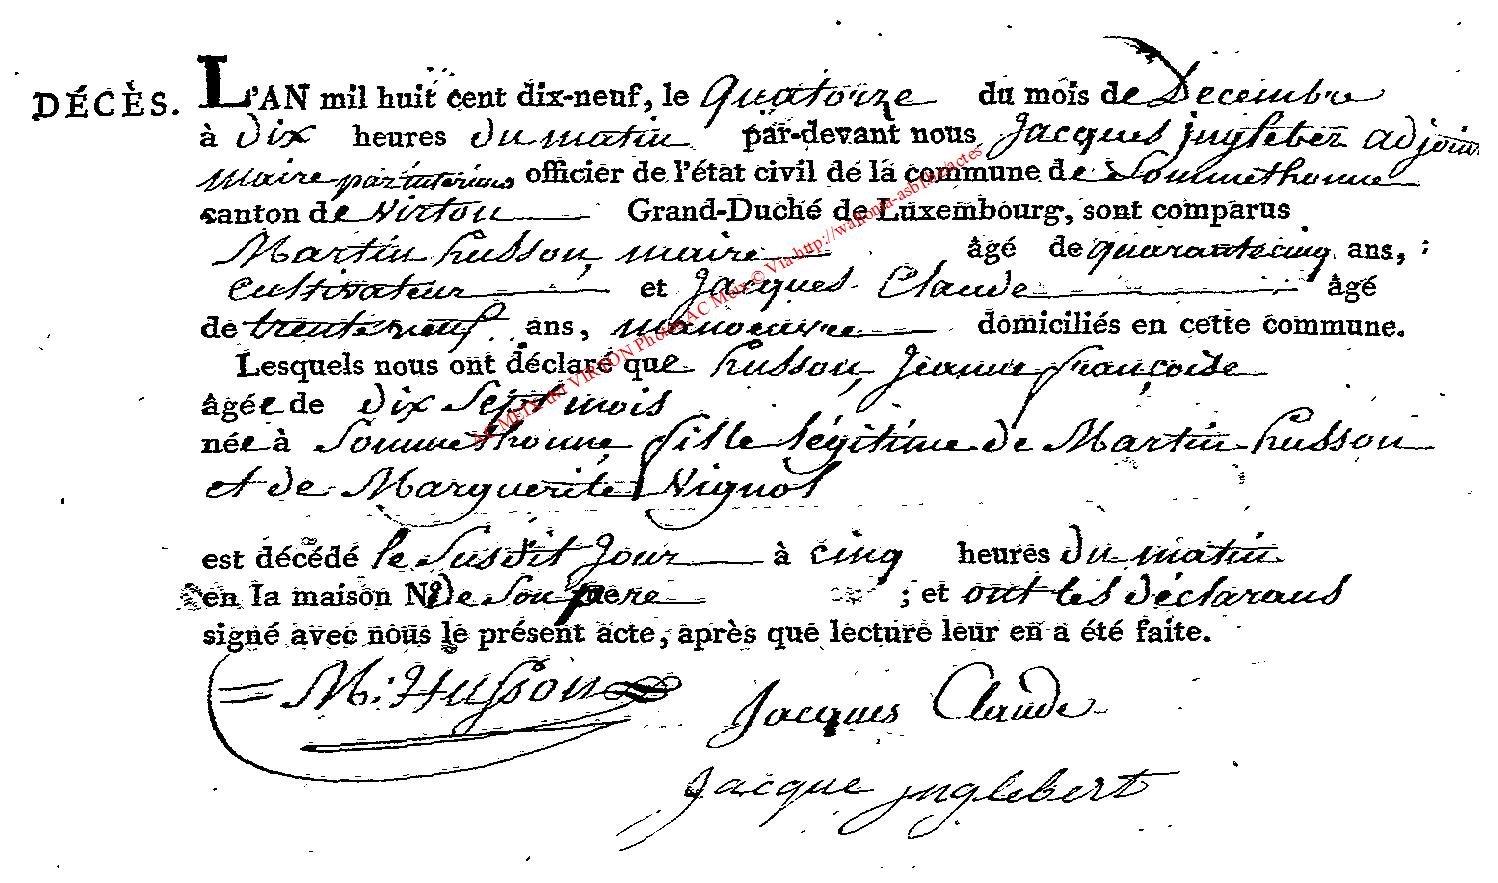 DÉCÈS. L'AN mil huit cent dix-neuf, le Quatorze du mois de Decembre
à Dix heures Du matin par-devant nous Jacques jngleber adjoin
maire par interim officier de l'état civil de la commune de Sommethonne
canton de Virton Grand-Duché de Luxembourg, sont comparus
Martin husson, maire âgé de quarantecinq ans,
Cultivateur et Jacques Claude âgé
de trenteneuf ans, manoeuvre domiciliés en cette commune.
Lesquels nous ont déclaré que husson, Jeanne françoise
âgée de Dix Sept mois
née à Sommethonne fille légitime de Martin husson
et de Marguerite Nignol
est décédé le Susdit Jour à cinq heures Du matin
en la maison N.º De Son pere ; et ont les déclarans
signé avec nous le présent acte, après que lecture leur en a été faite.
M: Husson Jacques Claude
Jacque jnglebert
AC MEIX-dvt VIRTON Photo AC Meix © Via http://wallonia-asbl.be/actes